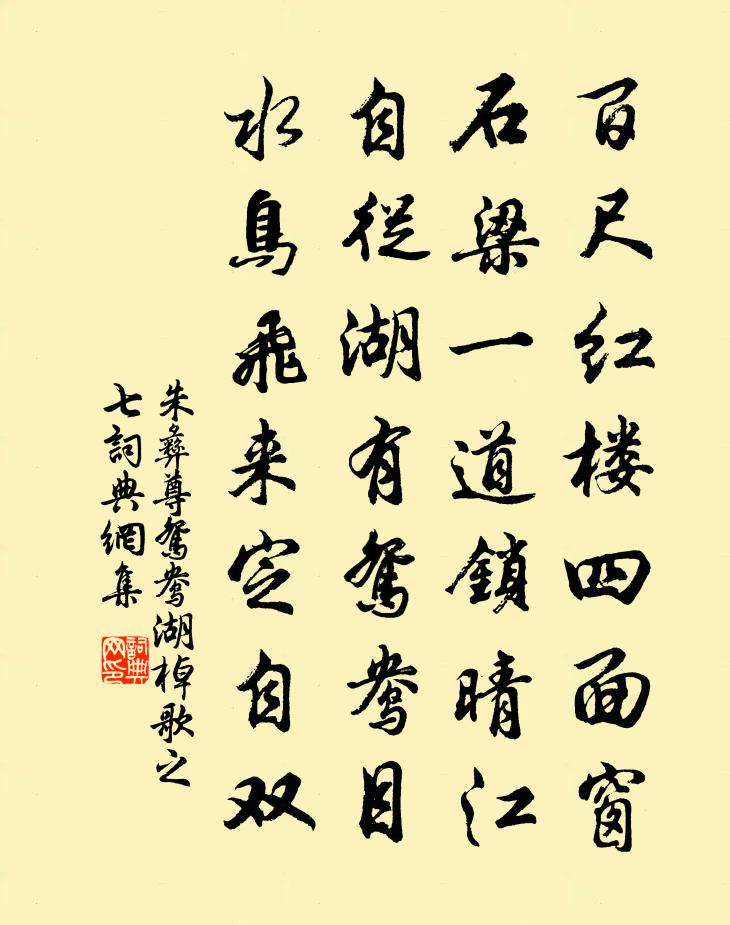 百尺红楼四面窗
石梁一道鎖晴江
自從湖有鴛鴦目
水鳥飛来定自双
朱彝尊鴛鴦湖棹歌之
七詞典網集
詞典网印